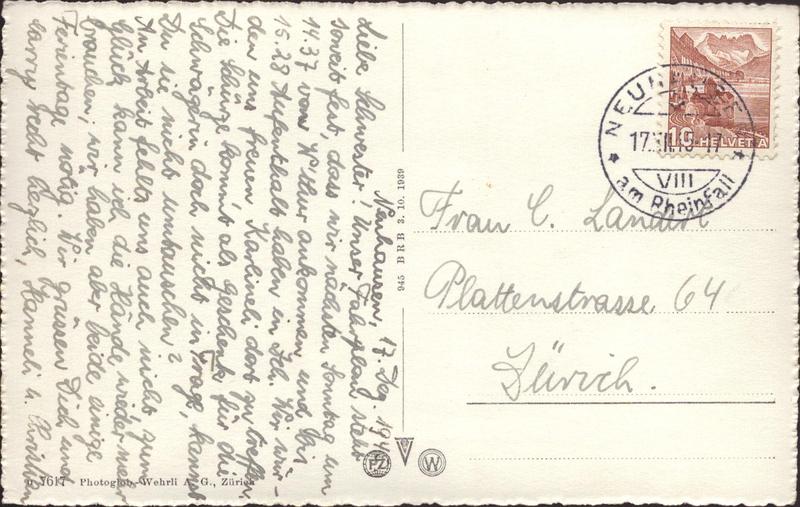 Neuhausen, 17. Dez. 19
Liebe Schwester! Unser Fahrplan steht
soweit fest, dass wir nächsten Sonntag um
14.37 von W'thur ankommen und bis
15.28 Aufenthalt haben in Zch. Wir wür-
den uns freuen Karlineli dort zu treffen.
Die Länge kommt als Geschenk für die
Schwägerin doch nicht in Frage, kannst
Du sie nicht umtauschen?
An Arbeit fehlts uns auch nicht, zum
Glück kann ich die Hände wieder mehr
brauchen, wir haben aber beide einige
Ferientage nötig. Wir grüssen Dich und
Harry recht herzlich, Hanneli u.
945 BRB 3. 10. 1939
7617 Photoglob-Wehrli A. G., Zürich
PZ
W
HELVETIA
10
NEUHAUSEN
17.XII.19-17
VIII
am Rheinfall
Frau C. Landert
Plattenstrasse 64
Zürich.